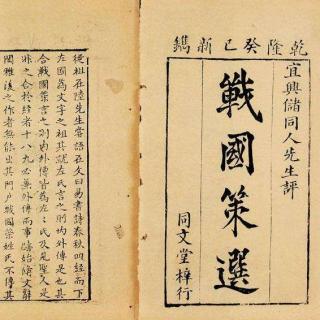 乾隆癸巳新鐫
宜興儲同人先生評
戰國策選
同文堂梓行
從祖在陸先生嘗語在文曰易書詩春秋四經而下
左國為文字之祖其就左氏言之則內外傳是也其
合戰國策言之則內外傳皆為左氏及見聖人是
非之合於經者十八九必兼外傳而事始備文辭
閎雅後之作者無能出其門戶戰國策姓氏不傳其